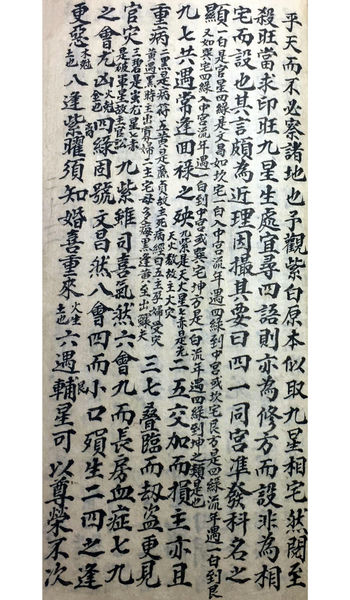 乎天而不必察諸地也予觀紫白原本似取九星相宅然閱至
殺旺當求印旺九星生處宜尋四語則亦為修方而設非為相
宅而設也其言頗為近理因撮其要曰四一同宮准發科名之
顯一白是官星四綠是文昌如坎宅一白入中宮流年遇四綠到中宮或坎宅艮方是四綠流年遇一白到艮
又如巽宅四綠入中宮流年遇一白到中宮或巽宅坤方是一白流年遇四綠到坤之類是也
九七共遇常逢回祿之殃九紫是後天火星七赤是先天火數故主火灾二五交加而損主亦且
重病二黑是病符五黃是廉貞故主死病經曰五主孕婦受灾黃遇黑時主出寡婦二主宅母多病黑逢黃至出鰥夫三七疊臨而刼盜更見
官灾三碧是蚩尤星七赤是破軍星故主官訟九紫雖司喜氣然六會九而長房血症七九
之會尤凶火剋金也四綠固號文昌然八會四而小口殞生二四之逢
更惡木剋土也八逢紫曜須知婚喜重來火生土也六遇輔星可以尊榮不次